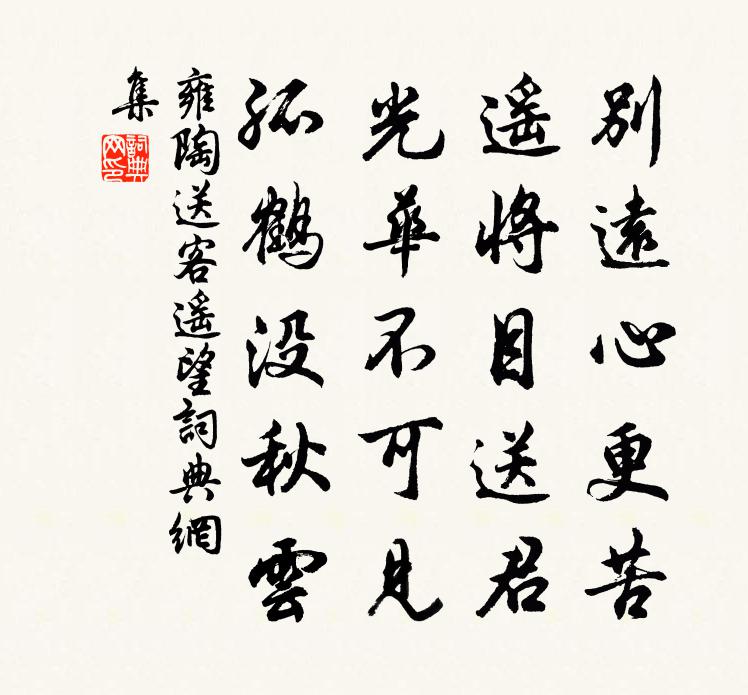 別遠心更苦
遥將目送君
光華不可見
孤鶴没秋雲
雍陶送客遥望詞典網
集
詞典网印